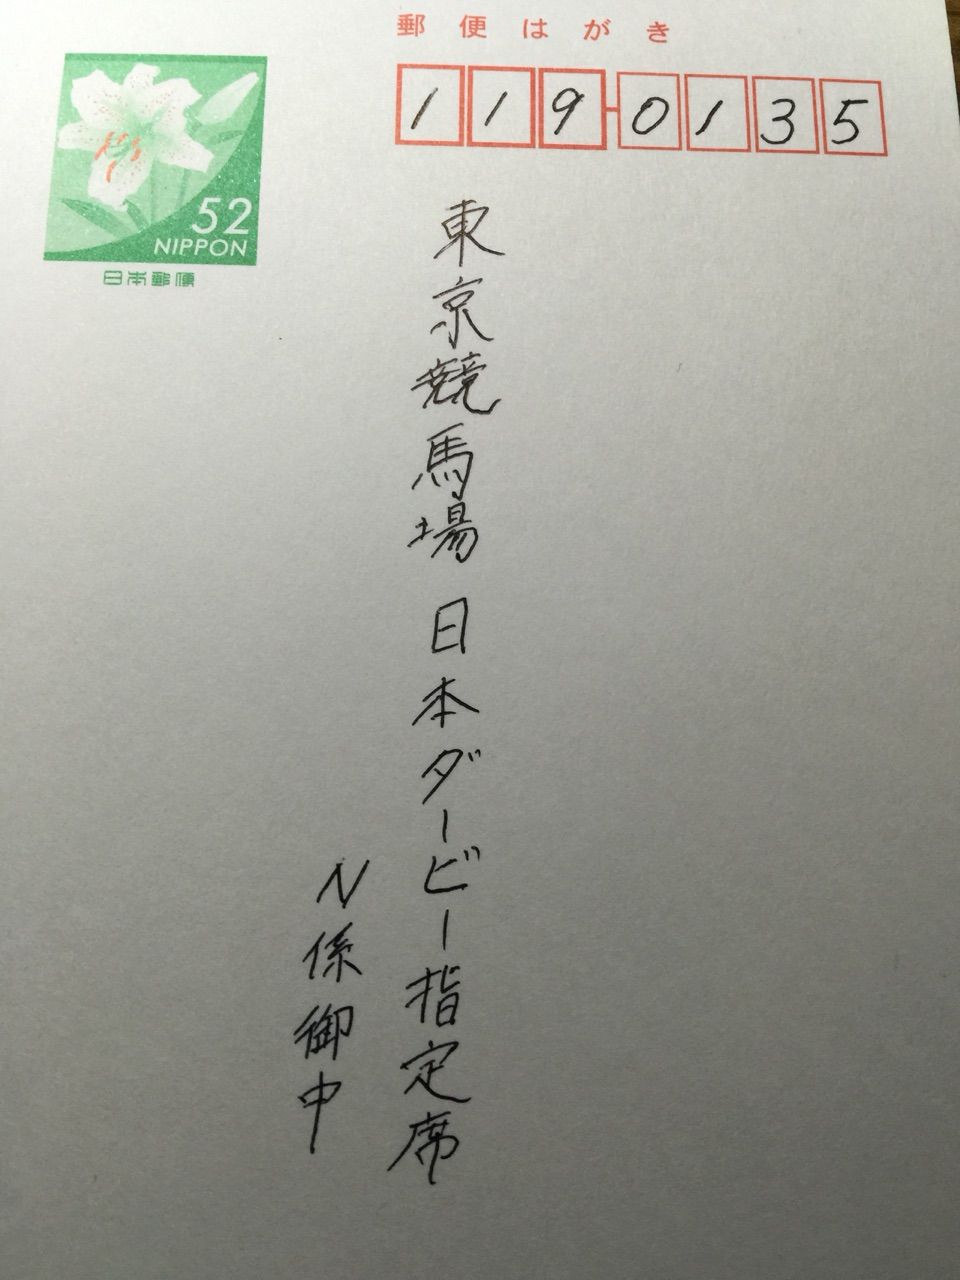 郵便はがき
119-0135
52
NIPPON
日本郵便
東京競馬場 日本ダービー指定席
N係御中